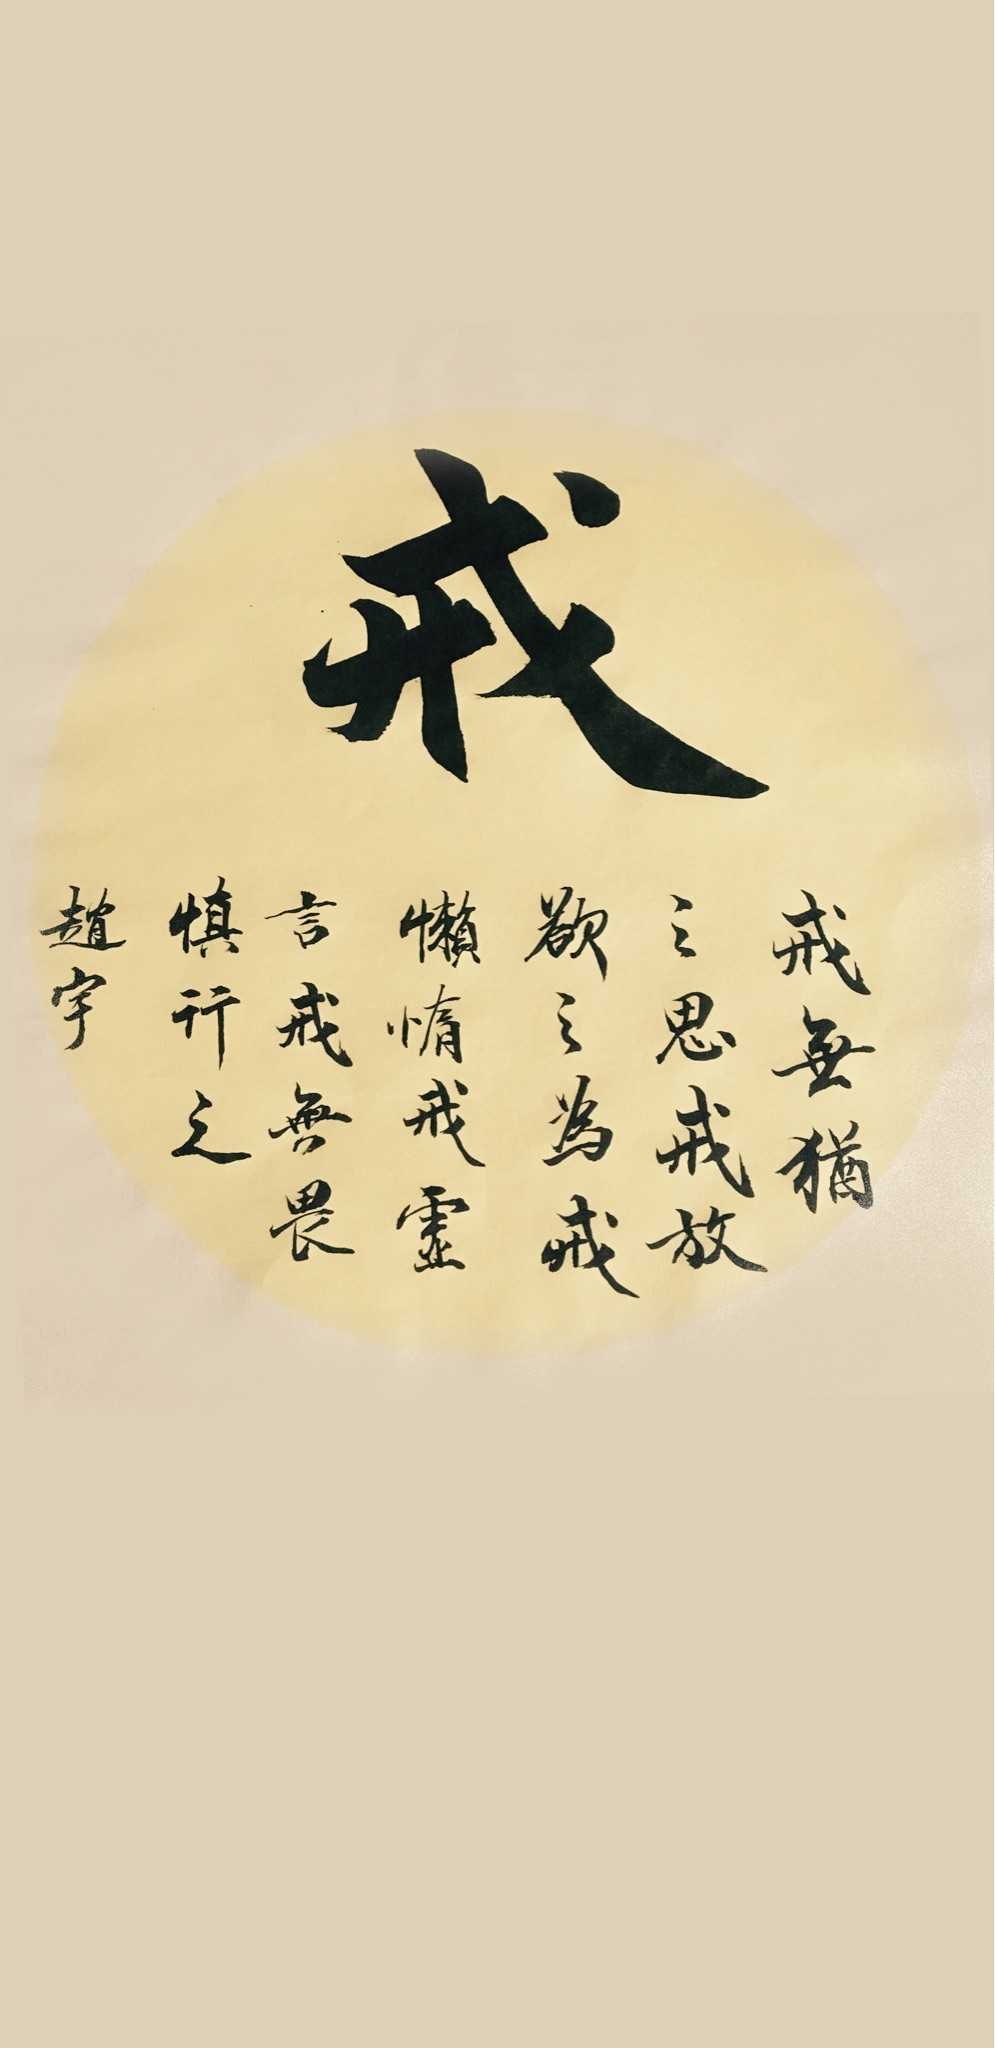 戒
戒無猶
之思戒放
欲之為戒
懶惰戒虛
言戒無畏
慎行之
趙宇